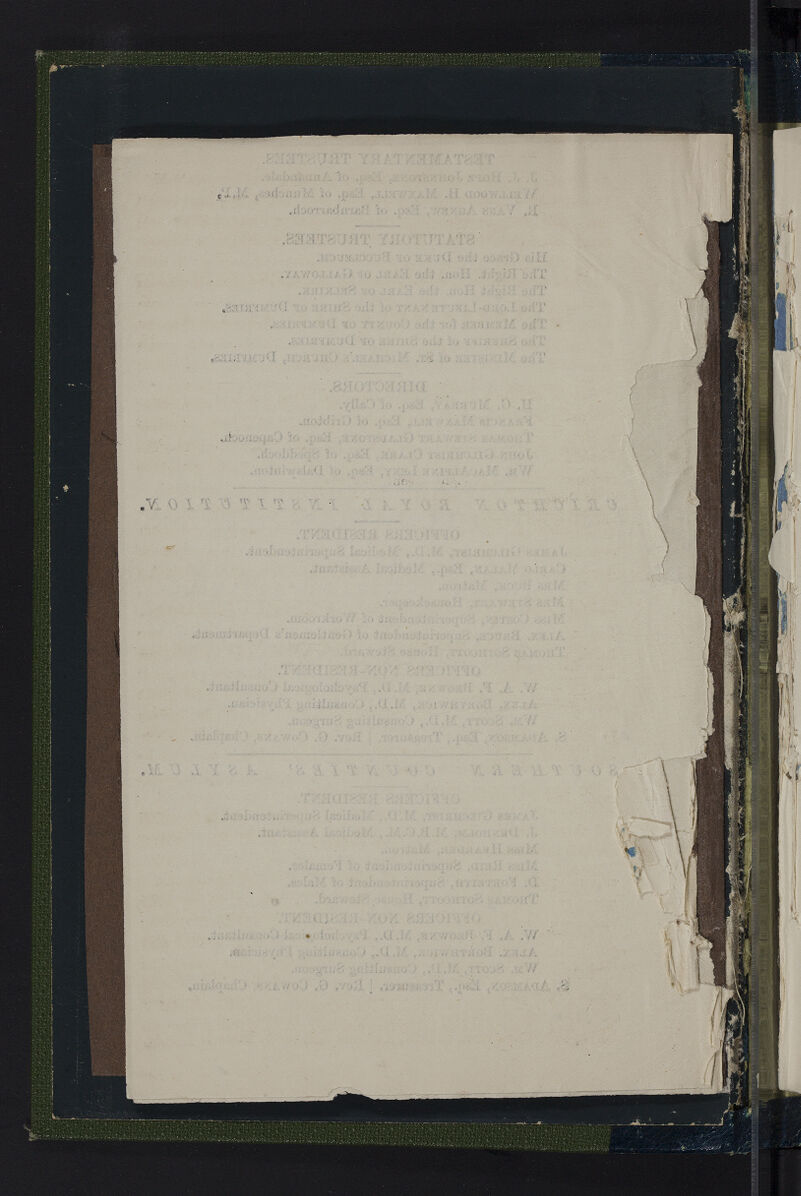 TESTAMENTARY TRUSTEES.
J. J. HOPE JOHNSTONE, Esq. of Annandale.
WELLWOOD H. MAXWELL, Esq. of Munches, M.P.
R. VANS AGNEW, Esq. of Barnbarroch.
STATUTORY TRUSTEES.
His Grace the DUKE OF BUCCLEUCH.
The Right Hon. the EARL OF GALLOWAY.
The Right Hon. the EARL OF SELKIRK.
The LORD-LIEUTENANT of the SHIRE OF DUMFRIES.
The MEMBER for the COUNTY OF DUMFRIES.
The SHERIFF of the SHIRE OF DUMFRIES.
The MINISTER of ST. MICHAEL'S CHURCH, DUMFRIES.
DIRECTORS.
H. G. MURRAY, Esq. of Cally.
FRANCIS MAXWELL, Esq. of Gribton.
THOMAS STEWART GLADSTONE, Esq. of Capenoch.
JOHN GILCHRIST CLARK, Esq. of Speddoch.
WM. MACALPINE LENY, Esq. of Dalswinton.
CRICHTON ROYAL INSTITUTION.
OFFICERS RESIDENT.
JAMES GILCHRIST, M.D., Medical Superintendent.
CARLO MALAN, Esq., Medical Assistant.
MRS BUCK, Matron.
MRS STEWART, Housekeeper.
MISS COATES, Superintendent of Workroom.
ALEX. BRUCE, Superintendent of Gentlemen's Department.
THOMAS SOTHCOTT, House Steward.
OFFICERS NON-RESIDENT.
W. A. F. BROWNE, M.D., Psychological Consultant.
ALEX. BORTHWICK, M.D., Consulting Physician.
WM. SCOTT, M.D., Consulting Surgeon.
S. ADAMSON, Esq., Treasurer. | Rev. G. COWANS, Chaplain.
SOUTHERN COUNTIES' ASYLUM.
OFFICERS RESIDENT.
JAMES GILCHRIST, M.D., Medical Superintendent.
J. DENHOLM, M.R.C.M., Medical Assistant.
MISS HEARDER, Matron.
MISS REID, Superintendent of Females.
D. FORSYTH, Superintendent of Males.
THOMAS SOTHCOTT, House Steward.
OFFICERS NON-RESIDENT.
W. A. F. BROWNE, M.D., Psychological Consultant.
ALEX. BORTHWICK, M.D., Consulting Physician.
WM. SCOTT, M.D., Consulting Surgeon.
S. ADAMSON, Esq., Treasurer. | Rev. G. COWANS, Chaplain.